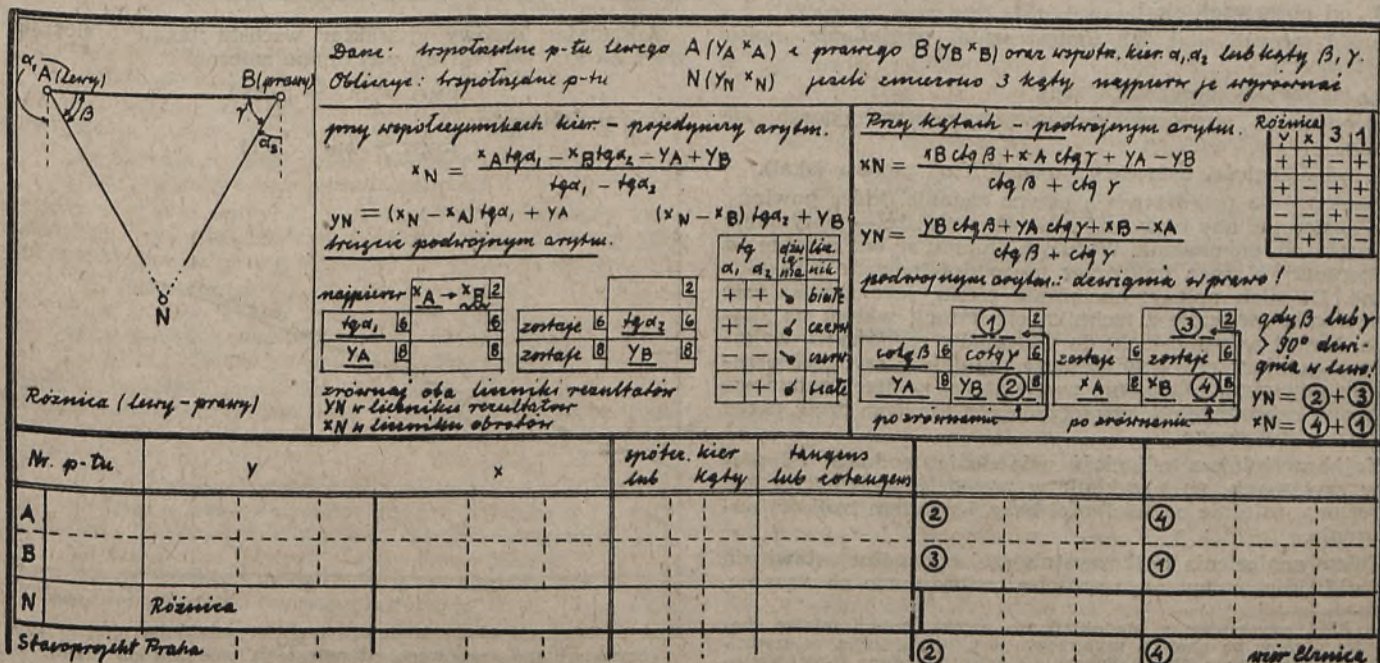 α₁ A (lewy)
B (prawy)
β
γ
α₂
N
Różnica (lewy – prawy)
Dane: współrzędne p-tu lewego A (YA XA) i prawego B (YB XB) oraz współ. kier. α₁ α₂ lub kąty β, γ.
Obliczyć: współrzędne p-tu N (YN XN) jeżeli zmierzono 3 kąty najpierw je wyrównać
przy współczynnikach kier. – pojedynczy arytm.
xN = (xA tgα₁ – xB tgα₂ – YA + YB) / (tgα₁ – tgα₂)
YN = (xN – xA) tgα₁ + YA (xN – xB) tgα₂ + YB
liczycie podwójnym arytm.
najpierw xA → xB 2 2
tgα₁ 6 6 zostaje 6 tgα₂ 6
YA 8 8 zostaje 8 YB 8
zrównaj oba liczniki rezultatów
YN w liczniku rezultatów
XN w liczniku obrotów
tg dźwignia licznik
α₁ α₂
+ + białe
+ – czerw
– – czerw
– + białe
Przy kątach – podwójnym arytm.
xN = (xB ctg β + xA ctg γ + YA – YB) / (ctg β + ctg γ)
YN = (YB ctg β + YA ctg γ + xB – xA) / (ctg β + ctg γ)
podwójnym arytm.: dźwignia w prawo!
Różnica
Y X 3 1
+ + – +
+ – + +
– – + –
– + – –
① 2 ③ 2
cotg β 6 cotg γ 6 zostaje 6 zostaje 6
YA 8 YB ② 8 xA 8 xB ④ 8
po zrównaniu po zrównaniu
gdy β lub γ
> 90° dźwi-
gnia w lewo!
YN = ② + ③
xN = ④ + ①
Nr. p-tu y x spółcz. kier tangens
lub kąty lub cotangens
A ② ④
B ③ ①
N Różnica
Stavoprojekt Praha ② ④ wzór